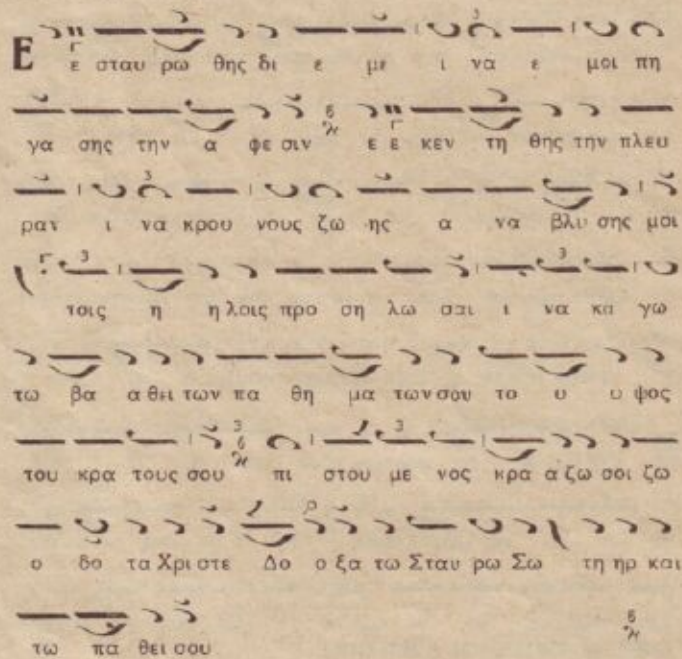 Ε ε σταυ ρω θης δι ε με ι να ε μοι πη
γα σης την α φε σιν ε ε κεν τη θης την πλευ
ραν ι να κρου νους ζω ης α να βλυ σης μοι
τοις η η λοις προ ση λω σαι ι να κα γω
τω βα α θει των πα θη μα των σου το υ υ ψος
του κρα τους σου πι στου με νος κρα α ζω σοι ζω
ο δο τα Χρι στε Δο ο ξα τω Σταυ ρω Σω τη ηρ και
τω πα θει σου